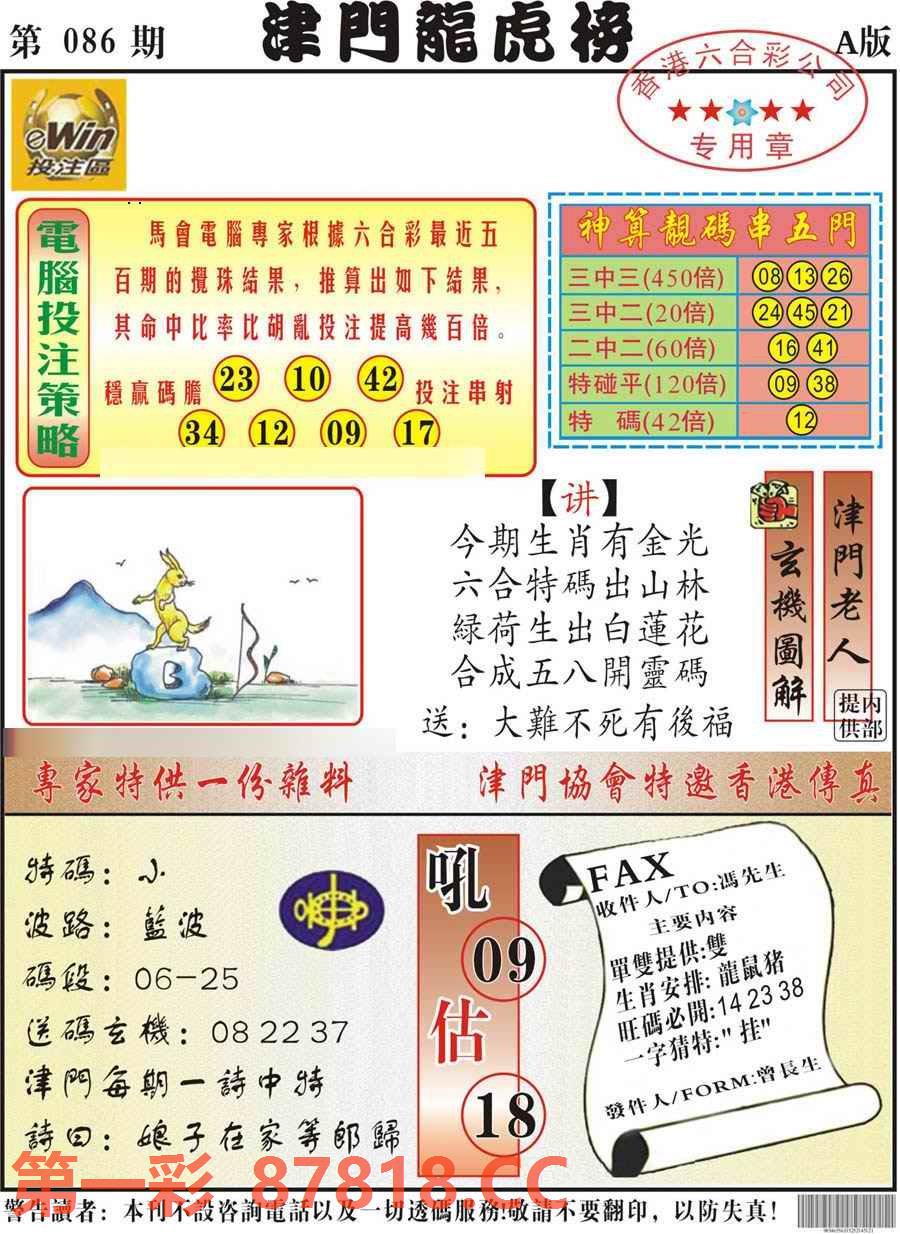 第 086 期
津門龍虎榜
A版
香港六合彩公司
专用章
eWin
投注區
電腦投注策略
馬會電腦專家根據六合彩最近五
百期的攪珠結果，推算出如下結果，
其命中比率比胡亂投注提高幾百倍。
穩贏碼膽 23 10 42 投注串射
34 12 09 17
神算靚碼串五門
三中三(450倍) 08 13 26
三中二(20倍) 24 45 21
二中二(60倍) 16 41
特碰平(120倍) 09 38
特 碼(42倍) 12
【讲】
今期生肖有金光
六合特碼出山林
緑荷生出白蓮花
合成五八開靈碼
送：大難不死有後福
玄機圖解
津門老人
内部提供
B
專家特供一份雜料
津門協會特邀香港傳真
特碼：小
波路：藍波
碼段：06-25
送碼玄機：08 22 37
津門每期一詩中特
詩曰：娘子在家等郎歸
吼
09
估
18
FAX
收件人/TO:馮先生
主要内容
單雙提供:雙
生肖安排:龍鼠猪
旺碼必開:14 23 38
一字猜特:"挂"
發件人/FORM:曾長生
第一彩 87818.CC
警告讀者：本刊不設咨詢電話以及一切透碼服務!敬請不要翻印，以防失真!